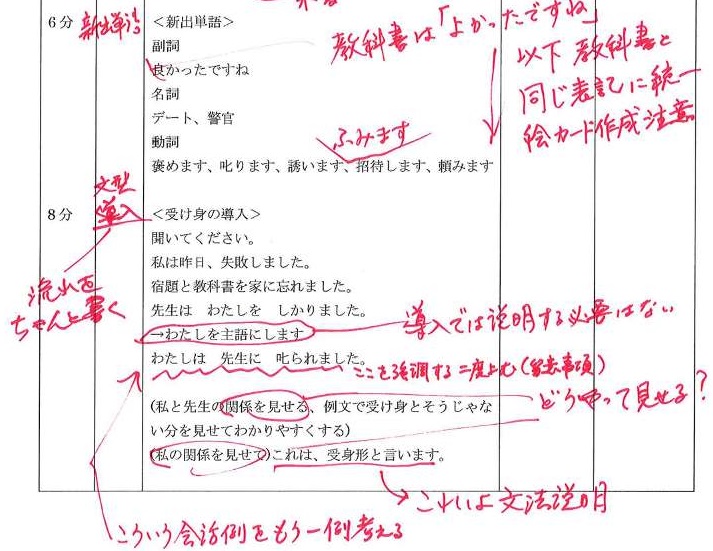 6分
新出単語
＜新出単語＞
副詞
良かったですね
教科書は「よかったですね」
以下 教科書と
同じ表記に統一
絵カード作成注意
名詞
デート、警官
動詞
ふみます
褒めます、叱ります、誘います、招待します、頼みます
8分
文型
導入
＜受け身の導入＞
聞いてください。
私は昨日、失敗しました。
宿題と教科書を家に忘れました。
流れを
ちゃんと書く
先生は　わたしを　しかりました。
→わたしを主語にします
導入では説明する必要はない
わたしは　先生に　叱られました。
ここを強調する 二度よむ(留意事項)
(私と先生の関係を見せる、例文で受け身とそうじゃな
い分を見せてわかりやすくする)
どうやって見せる？
(私の関係を見せて)これは、受身形と言います。
これは文法説明
こういう会話例をもう一例考える